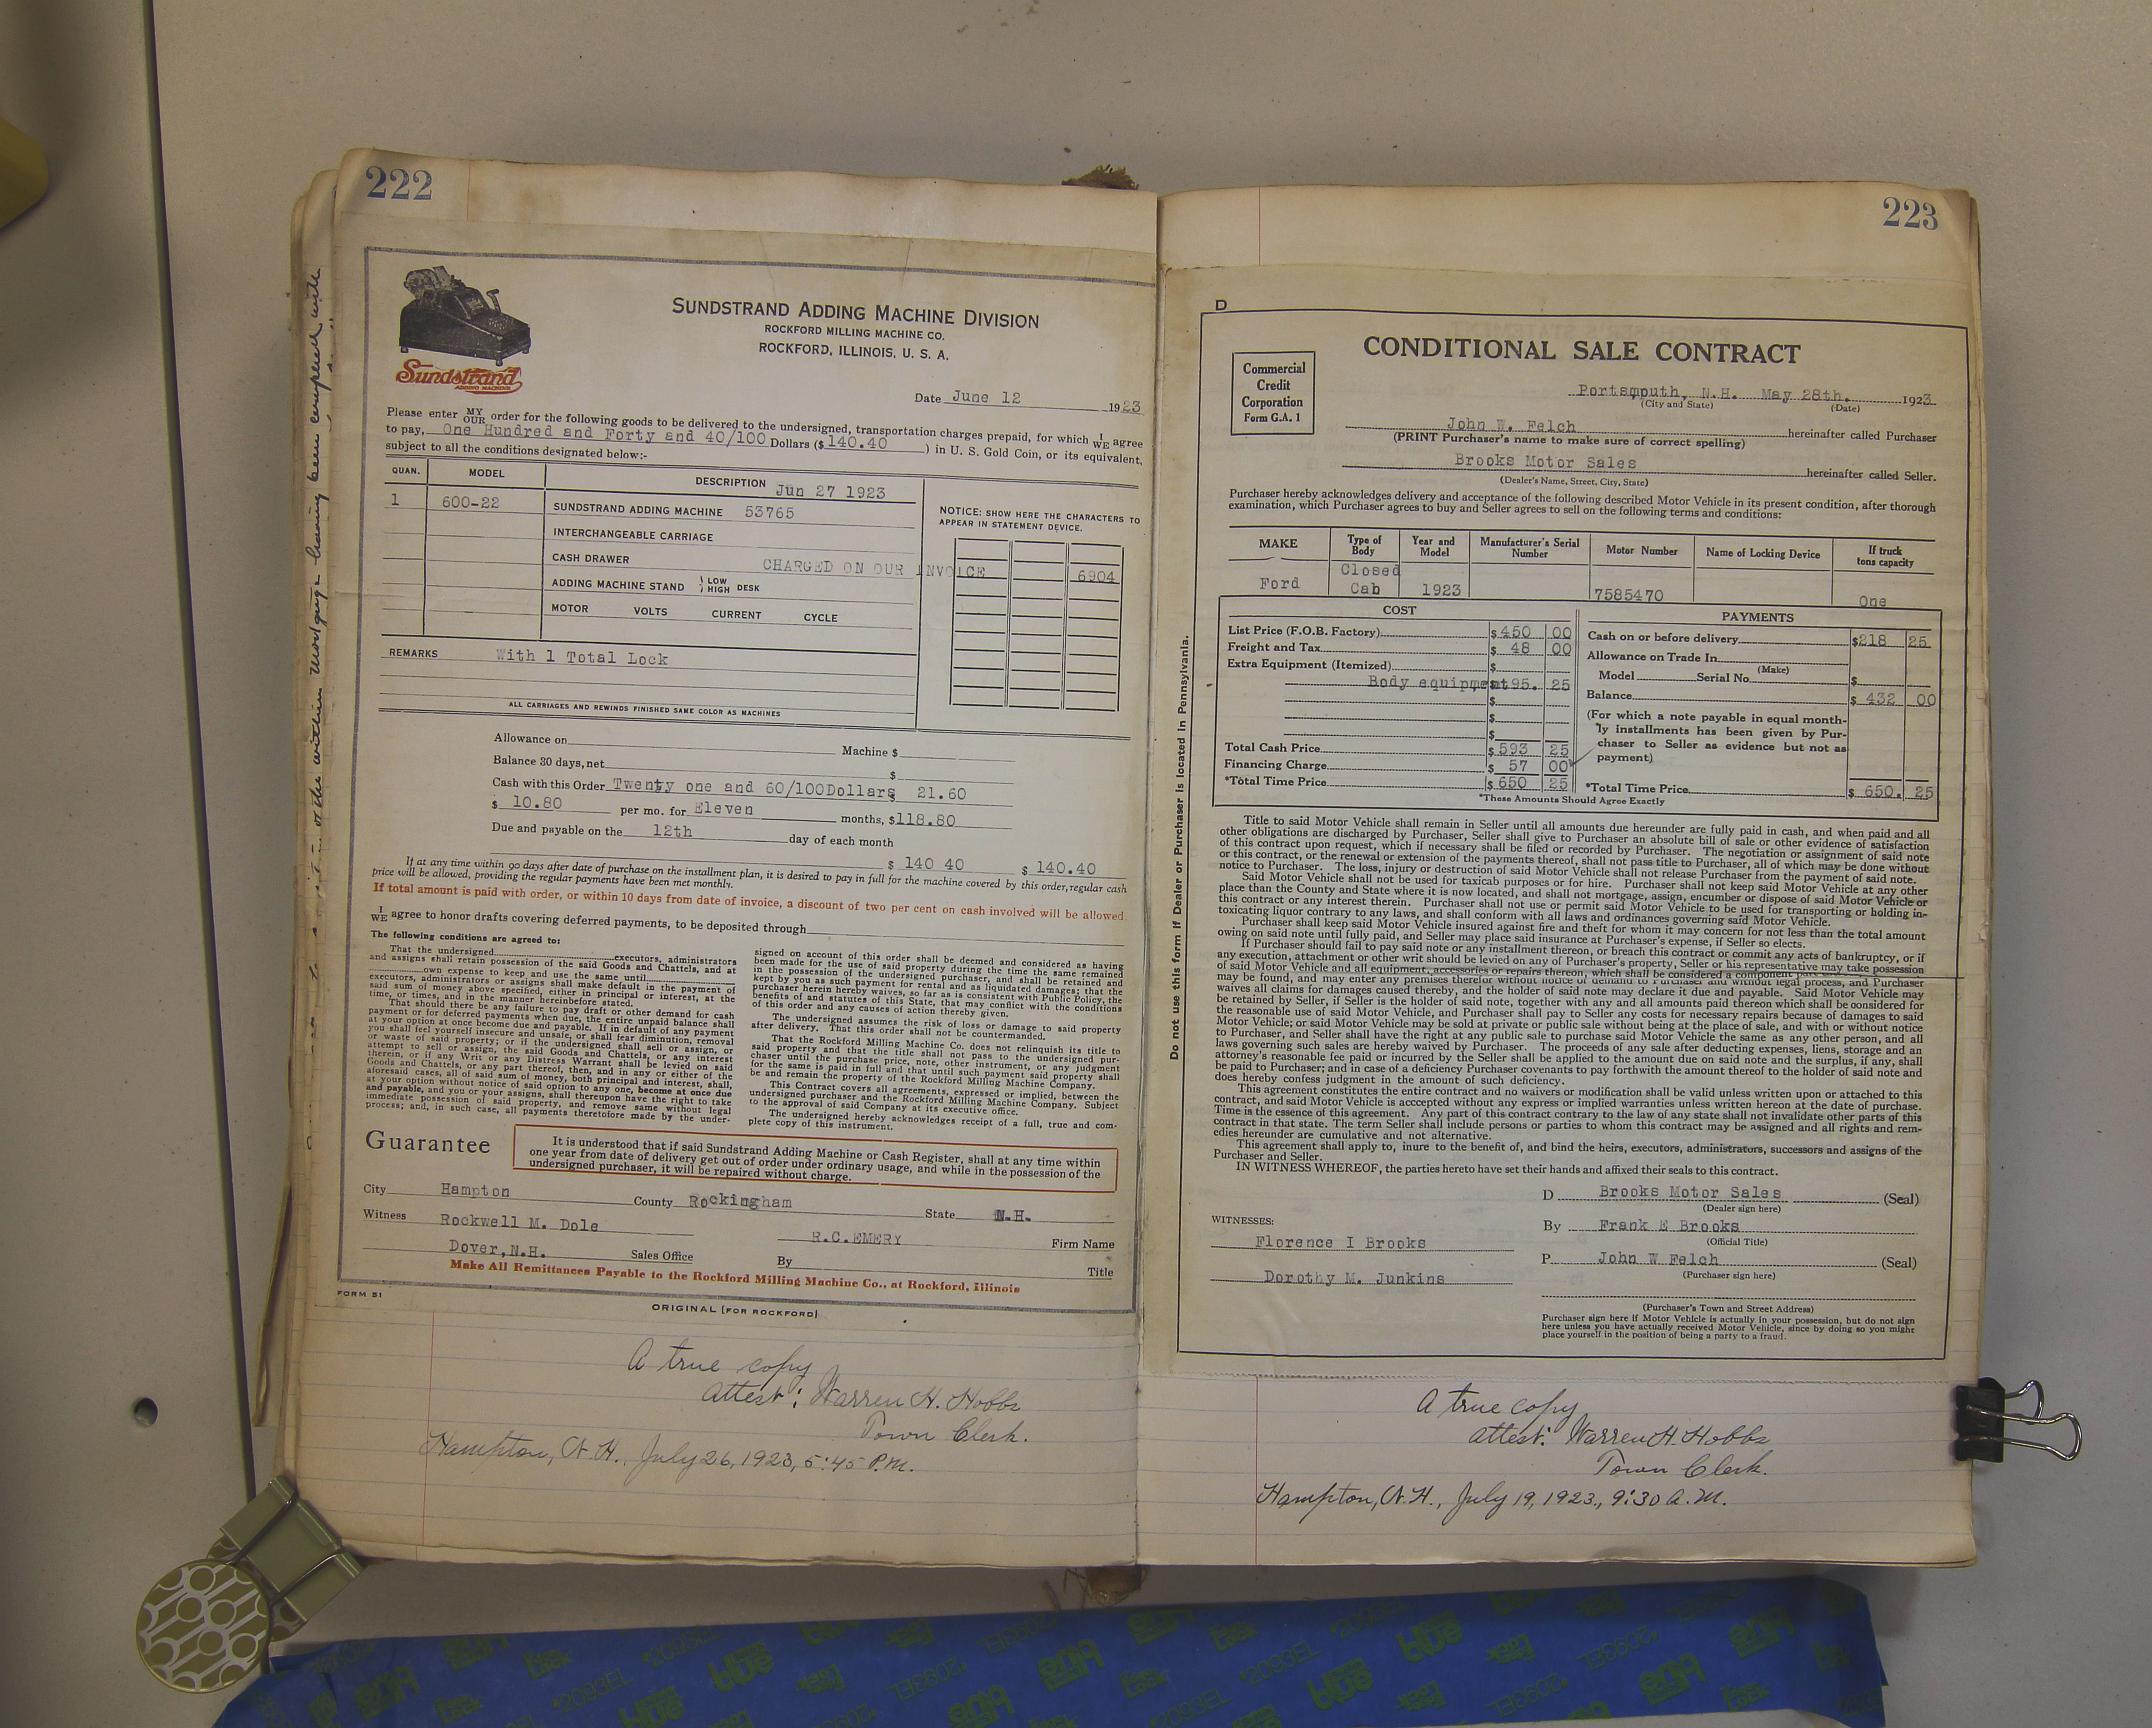 222
Sundstrand
ADDING MACHINE
SUNDSTRAND ADDING MACHINE DIVISION
ROCKFORD MILLING MACHINE CO.
ROCKFORD, ILLINOIS, U. S. A.
Date June 12 1923
Please enter MY OUR order for the following goods to be delivered to the undersigned, transportation charges prepaid, for which I WE agree
to pay, One Hundred and Forty and 40/100 Dollars ($140.40 ) in U. S. Gold Coin, or its equivalent,
subject to all the conditions designated below:-
QUAN. MODEL DESCRIPTION Jun 27 1923
1 600-22 SUNDSTRAND ADDING MACHINE 53765
NOTICE: SHOW HERE THE CHARACTERS TO
APPEAR IN STATEMENT DEVICE.
INTERCHANGEABLE CARRIAGE
CASH DRAWER CHARGED ON OUR INVOICE 6904
ADDING MACHINE STAND LOW HIGH DESK
MOTOR VOLTS CURRENT CYCLE
REMARKS With 1 Total Lock
ALL CARRIAGES AND REWINDS FINISHED SAME COLOR AS MACHINES
Allowance on Machine $
Balance 30 days, net $
Cash with this Order Twenty one and 60/100 Dollars $ 21.60
$ 10.80 per mo. for Eleven months, $118.80
Due and payable on the 12th day of each month
$ 140 40 $ 140.40
If at any time within 90 days after date of purchase on the installment plan, it is desired to pay in full for the machine covered by this order, regular cash
price will be allowed, providing the regular payments have been met monthly.
If total amount is paid with order, or within 10 days from date of invoice, a discount of two per cent on cash involved will be allowed.
I WE agree to honor drafts covering deferred payments, to be deposited through
The following conditions are agreed to:
That the undersigned executors, administrators
and assigns shall retain possession of the said Goods and Chattels, and at
own expense to keep and use the same until
executors, administrators or assigns shall make default in the payment of
said sum of money above specified, either in principal or interest, at the
time, or times, and in the manner hereinbefore stated.
That should there be any failure to pay draft or other demand for cash
payment or for deferred payments when due, the entire unpaid balance shall
at your option at once become due and payable. If in default of any payment
you shall feel yourself insecure and unsafe, or shall fear diminution, removal
or waste of said property; or if the undersigned shall sell or assign, or
attempt to sell or assign, the said Goods and Chattels, or any interest
therein, or if any Writ or any Distress Warrant shall be levied on said
Goods and Chattels, or any part thereof, then, and in any or either of the
aforesaid cases, all of said sum of money, both principal and interest, shall,
at your option without notice of said option to any one, become at once due
and payable, and you or your assigns, shall thereupon have the right to take
immediate possession of said property, and remove same without legal
process; and, in such case, all payments theretofore made by the under-
signed on account of this order shall be deemed and considered as having
been made for the use of said property during the time the same remained
in the possession of the undersigned purchaser, and shall be retained and
kept by you as such payment for rental and as liquidated damages; that the
purchaser herein hereby waives, so far as is consistent with Public Policy, the
benefits of and statutes of this State, that may conflict with the conditions
of this order and any causes of action thereby given.
The undersigned assumes the risk of loss or damage to said property
after delivery. That this order shall not be countermanded.
That the Rockford Milling Machine Co. does not relinquish its title to
said property and that the title shall not pass to the undersigned pur-
chaser until the purchase price, note, other instrument, or any judgment
for the same is paid in full and that until such payment said property shall
be and remain the property of the Rockford Milling Machine Company.
This Contract covers all agreements, expressed or implied, between the
undersigned purchaser and the Rockford Milling Machine Company. Subject
to the approval of said Company at its executive office.
The undersigned hereby acknowledges receipt of a full, true and com-
plete copy of this instrument.
Guarantee
It is understood that if said Sundstrand Adding Machine or Cash Register, shall at any time within
one year from date of delivery get out of order under ordinary usage, and while in the possession of the
undersigned purchaser, it will be repaired without charge.
City Hampton County Rockingham State N.H.
Witness Rockwell M. Dole R.C.EMERY Firm Name
Dover, N.H. Sales Office By Title
Make All Remittances Payable to the Rockford Milling Machine Co., at Rockford, Illinois
FORM 51
ORIGINAL [FOR ROCKFORD]
A true copy
attest: Warren H. Hobbs
Town Clerk.
Hampton, N.H., July 26, 1923, 5:45 P.M.
the within mortgage having been complied with
223
D
CONDITIONAL SALE CONTRACT
Commercial
Credit
Corporation
Form G.A. 1
Portsmouth, N.H. May 28th. 1923
(City and State) (Date)
John W. Felch hereinafter called Purchaser
(PRINT Purchaser's name to make sure of correct spelling)
Brooks Motor Sales hereinafter called Seller.
(Dealer's Name, Street, City, State)
Purchaser hereby acknowledges delivery and acceptance of the following described Motor Vehicle in its present condition, after thorough
examination, which Purchaser agrees to buy and Seller agrees to sell on the following terms and conditions:
MAKE Type of Body Year and Model Manufacturer's Serial Number Motor Number Name of Locking Device If truck tons capacity
Ford Closed Cab 1923 7585470 One
COST
List Price (F.O.B. Factory) $450 00
Freight and Tax $ 48 00
Extra Equipment (Itemized) $
Body equipment 95. 25
$
$
$
Total Cash Price $ 593 25
Financing Charge $ 57 00
*Total Time Price $ 650 25
PAYMENTS
Cash on or before delivery $218 25
Allowance on Trade In
(Make)
Model Serial No. $
Balance $ 432 00
(For which a note payable in equal month-
ly installments has been given by Pur-
chaser to Seller as evidence but not as
payment)
*Total Time Price $ 650. 25
*These Amounts Should Agree Exactly
Do not use this form if Dealer or Purchaser is located in Pennsylvania.
Title to said Motor Vehicle shall remain in Seller until all amounts due hereunder are fully paid in cash, and when paid and all
other obligations are discharged by Purchaser, Seller shall give to Purchaser an absolute bill of sale or other evidence of satisfaction
of this contract upon request, which if necessary shall be filed or recorded by Purchaser. The negotiation or assignment of said note
or this contract, or the renewal or extension of the payments thereof, shall not pass title to Purchaser, all of which may be done without
notice to Purchaser. The loss, injury or destruction of said Motor Vehicle shall not release Purchaser from the payment of said note.
Said Motor Vehicle shall not be used for taxicab purposes or for hire. Purchaser shall not keep said Motor Vehicle at any other
place than the County and State where it is now located, and shall not mortgage, assign, encumber or dispose of said Motor Vehicle or
this contract or any interest therein. Purchaser shall not use or permit said Motor Vehicle to be used for transporting or holding in-
toxicating liquor contrary to any laws, and shall conform with all laws and ordinances governing said Motor Vehicle.
Purchaser shall keep said Motor Vehicle insured against fire and theft for whom it may concern for not less than the total amount
owing on said note until fully paid, and Seller may place said insurance at Purchaser's expense, if Seller so elects.
If Purchaser should fail to pay said note or any installment thereon, or breach this contract or commit any acts of bankruptcy, or if
any execution, attachment or other writ should be levied on any of Purchaser's property, Seller or his representative may take possession
of said Motor Vehicle and all equipment, accessories or repairs thereon, which shall be considered a component part
may be found, and may enter any premises therefor without notice or demand to Purchaser and without legal process, and Purchaser
waives all claims for damages caused thereby, and the holder of said note may declare it due and payable. Said Motor Vehicle may
be retained by Seller, if Seller is the holder of said note, together with any and all amounts paid thereon which shall be considered for
the reasonable use of said Motor Vehicle, and Purchaser shall pay to Seller any costs for necessary repairs because of damages to said
Motor Vehicle; or said Motor Vehicle may be sold at private or public sale without being at the place of sale, and with or without notice
to Purchaser, and Seller shall have the right at any public sale to purchase said Motor Vehicle the same as any other person, and all
laws governing such sales are hereby waived by Purchaser. The proceeds of any sale after deducting expenses, liens, storage and an
attorney's reasonable fee paid or incurred by the Seller shall be applied to the amount due on said note and the surplus, if any, shall
be paid to Purchaser; and in case of a deficiency Purchaser covenants to pay forthwith the amount thereof to the holder of said note and
does hereby confess judgment in the amount of such deficiency.
This agreement constitutes the entire contract and no waivers or modification shall be valid unless written upon or attached to this
contract, and said Motor Vehicle is accepted without any express or implied warranties unless written hereon at the date of purchase.
Time is the essence of this agreement. Any part of this contract contrary to the law of any state shall not invalidate other parts of this
contract in that state. The term Seller shall include persons or parties to whom this contract may be assigned and all rights and rem-
edies hereunder are cumulative and not alternative.
This agreement shall apply to, inure to the benefit of, and bind the heirs, executors, administrators, successors and assigns of the
Purchaser and Seller.
IN WITNESS WHEREOF, the parties hereto have set their hands and affixed their seals to this contract.
D Brooks Motor Sales (Seal)
(Dealer sign here)
WITNESSES:
By Frank E Brooks
(Official Title)
Florence I Brooks
P. John W Felch (Seal)
(Purchaser sign here)
Dorothy M. Junkins
(Purchaser's Town and Street Address)
Purchaser sign here if Motor Vehicle is actually in your possession, but do not sign
here unless you have actually received Motor Vehicle, since by doing so you might
place yourself in the position of being a party to a fraud.
A true copy
attest: Warren H. Hobbs
Town Clerk.
Hampton, N.H., July 19, 1923, 9:30 A.M.